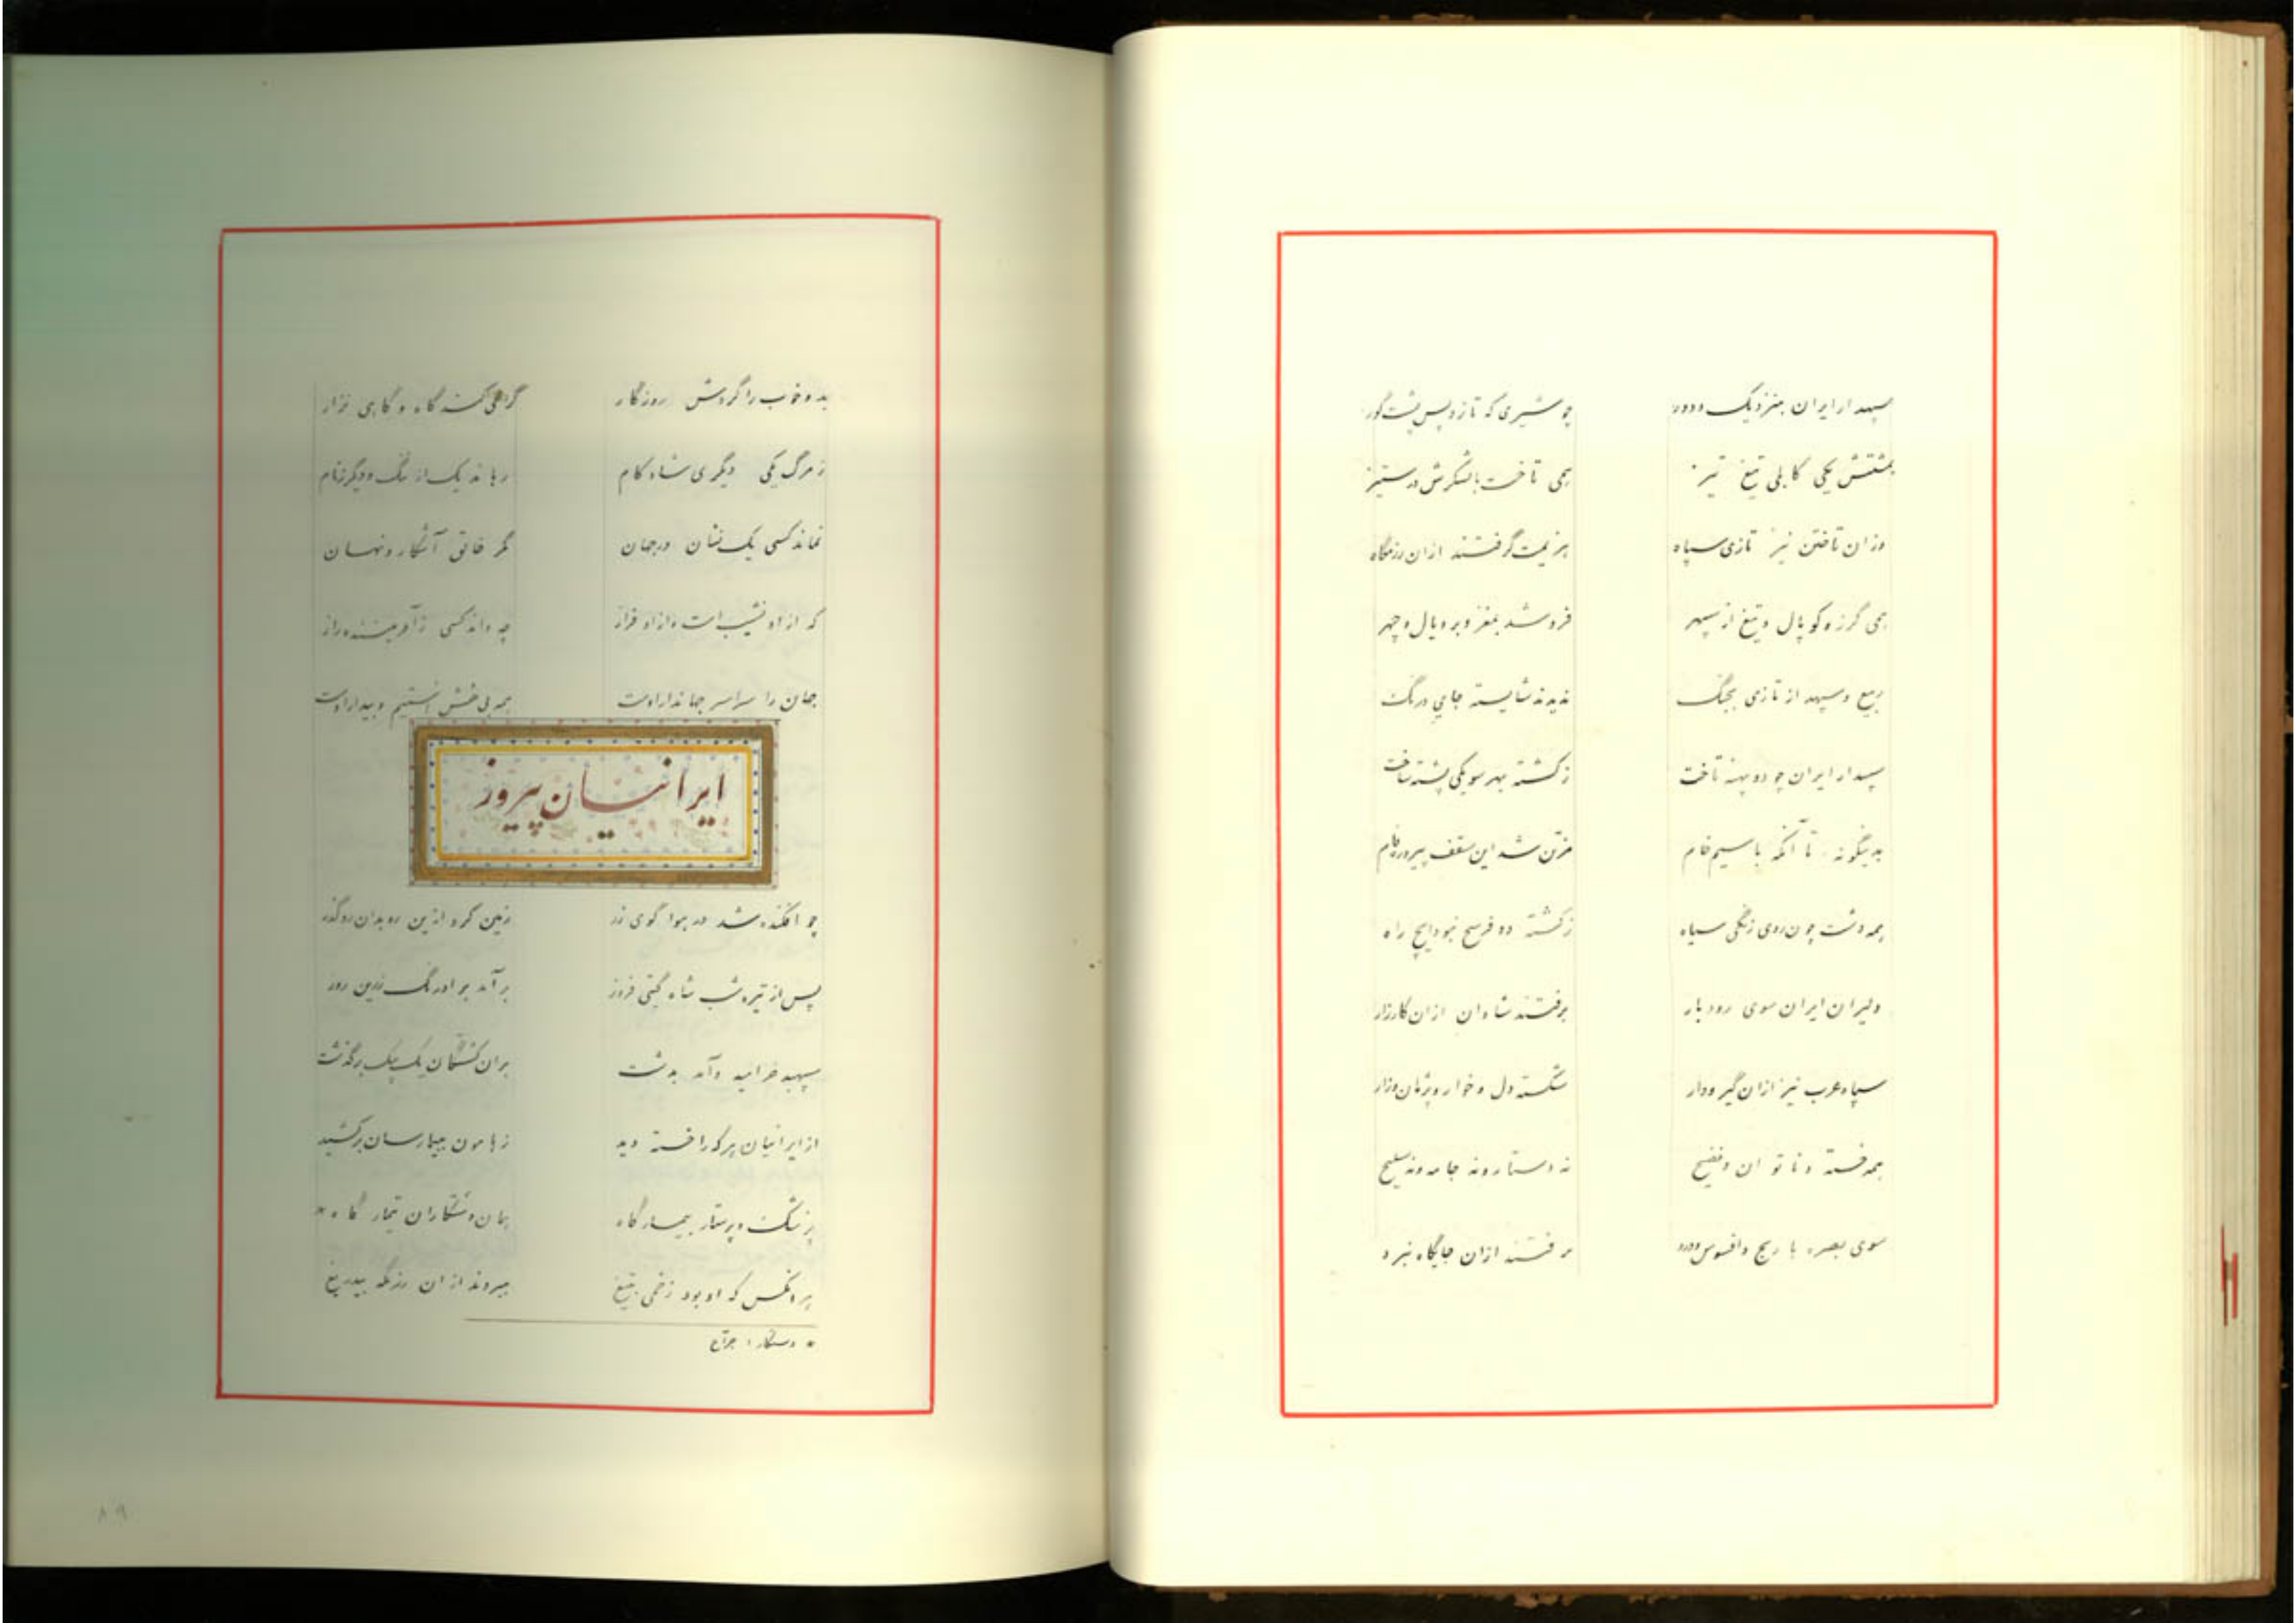 سپهدار ایران بنزدیک و دور چو شیری که تازد پس پشت گور
بمشتش یکی کابلی تیغ تیز همی تاخت با لشکرش در ستیز
وزان تاختن نیز تازی سپاه هزیمت گرفتند ازان رزمگاه
همی گرز و کوپال و تیغ از سپهر فرو شد بمغز و بر و یال و چهر
ربیع و سپهبد از تازی بجنگ ندیدند شایسته جای درنگ
سپهدار ایران چو دو پهنه تاخت ز کشته بهر سو یکی پشته ساخت
بدینگونه تا آنکه با سیم خام مزین شد این سقف پیروزه فام
همه دشت چون روی زنگی سیاه ز کشته دو فرسخ نبود ایچ راه
دلیران ایران سوی رودبار برفتند شادان ازان کارزار
سپاه عرب نیز ازان گیر و دار شکسته دل و خوار و پژمان و زار
همه خسته و ناتوان و فضیح نه دستار و نه جامه و نه سلیح
سوی بصره با رنج و افسوس و درد برفتند ازان جایگاه نبرد
بد و خوب را گردش روزگار گرامی کند گاه و گاهی نزار
ز مرگ یکی دیگری شاد کام رهاند یک از ننگ و دیگر ز نام
نماند کسی یک نشان در جهان مگر خالق آشکار و نهان
که از او نشیب است و از او فراز چه داند کسی ز آفریننده راز
جهان را سراسر جهاندار اوست همه بی خفتن استیم و بیدار اوست
ایرانیان پیروز
چو افکنده شد در هوا گوی زر زمین کرد ازین رو بدان رو گذر
پس از تیره شب شاه گیتی فروز برآمد بر اورنگ زرین روز
سپهبد خرامید و آمد بدشت بران کشتگان یک بیک برگذشت
از ایرانیان هر که را خسته دید ز هامون بیمارسان برکشید
پزشک و پرستار بیمارگاه همان دستکاران تیمار گاه *
هر آنکس که او بود زخمی بتیغ ببردند ازان رزمگه بیدریغ
* دستکار : جراح
۸۹